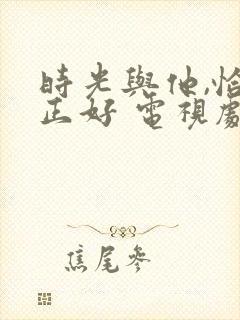 時光與他,恰
正好 電視劇
焦尾參